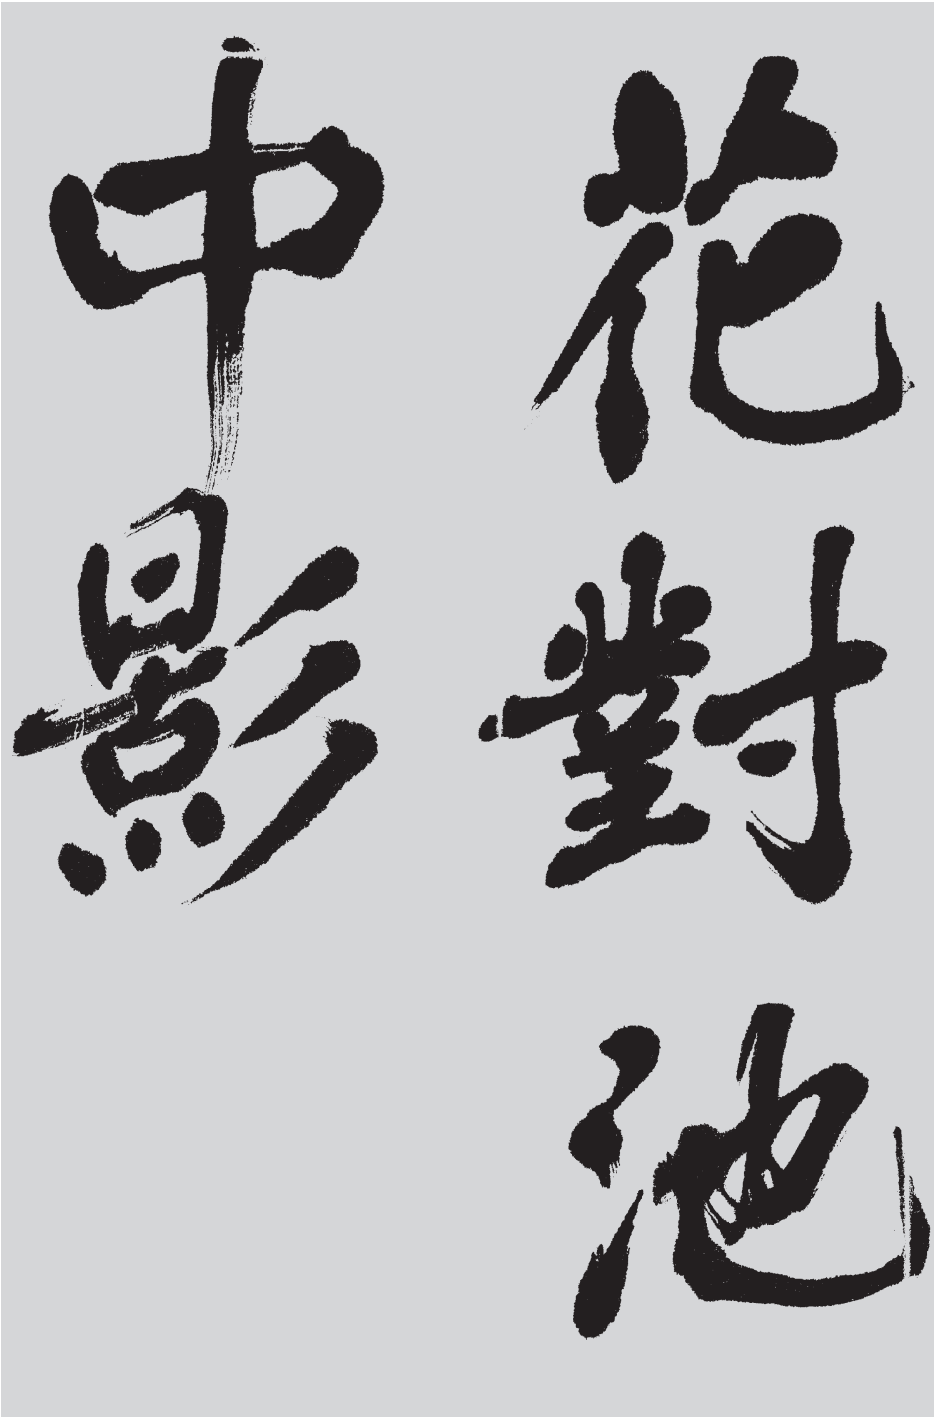 花對池
中影